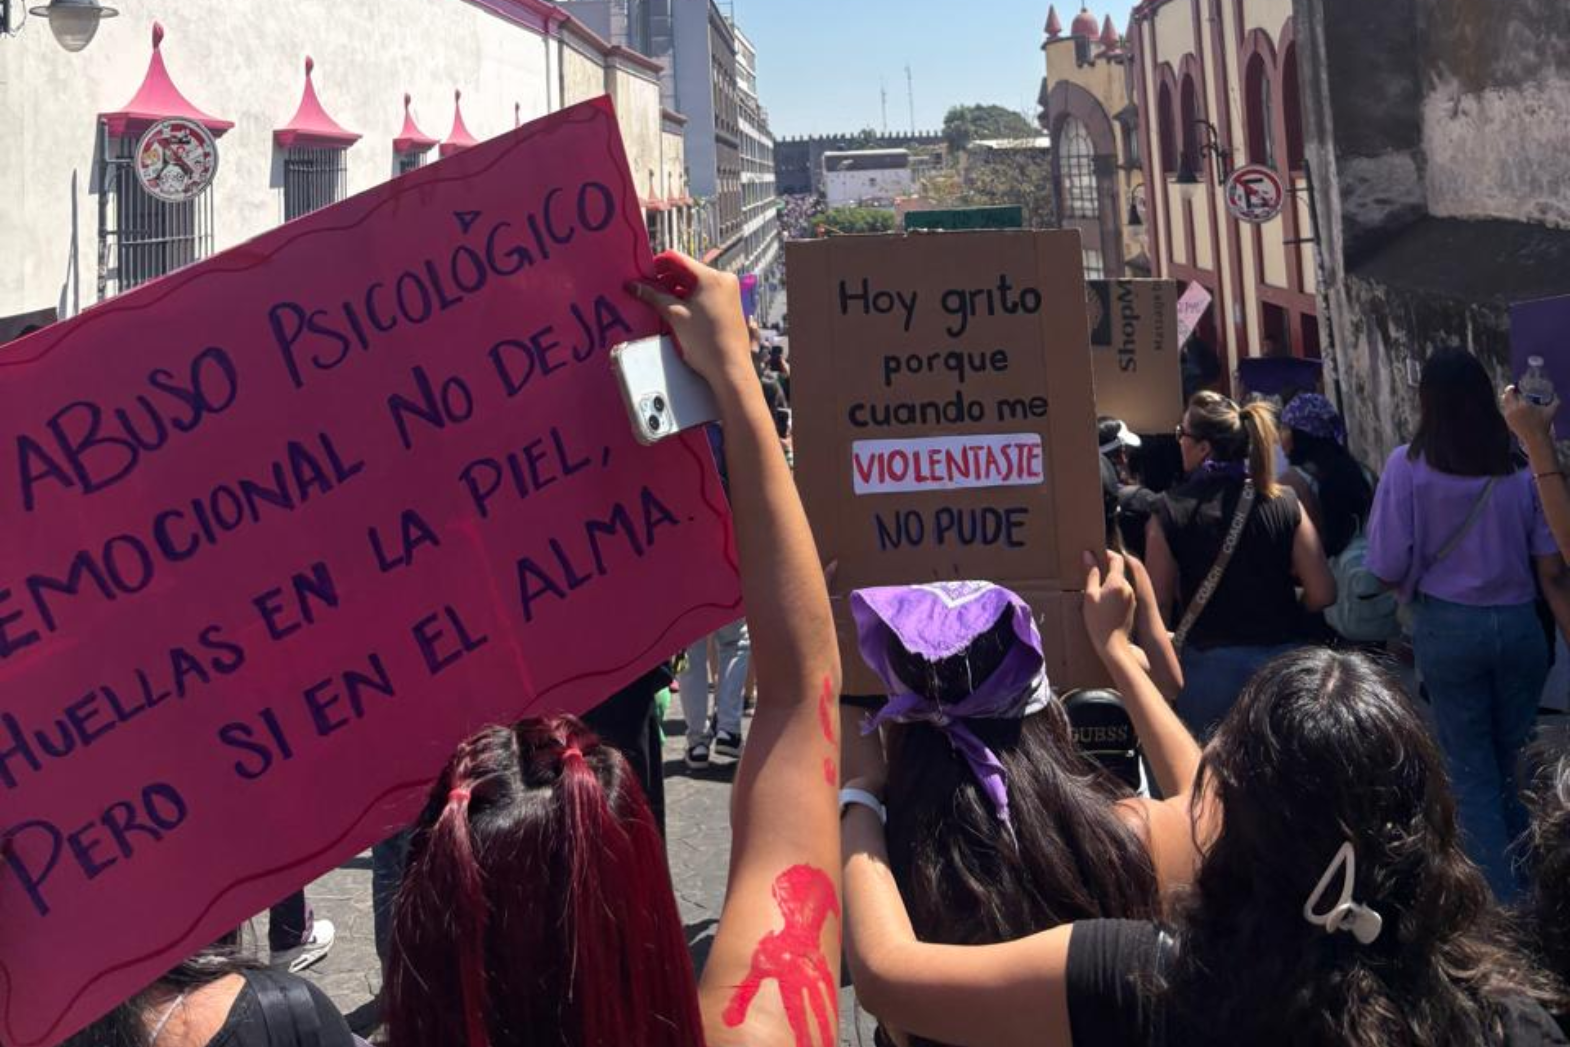 ABUSO PSICOLÓGICO
EMOCIONAL NO DEJA
HUELLAS EN LA PIEL,
PERO SI EN EL ALMA.
Hoy grito
porque
cuando me
VIOLENTASTE
NO PUDE
ShopM
COACH
COACH